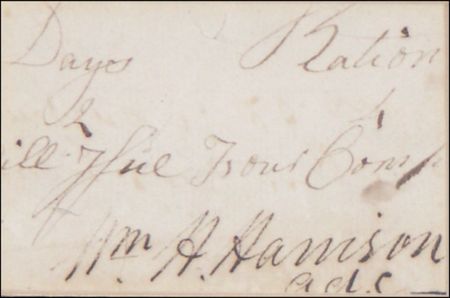 Days Ration
2 1
ill Issue Your Comp
Wm H. Harrison
adc